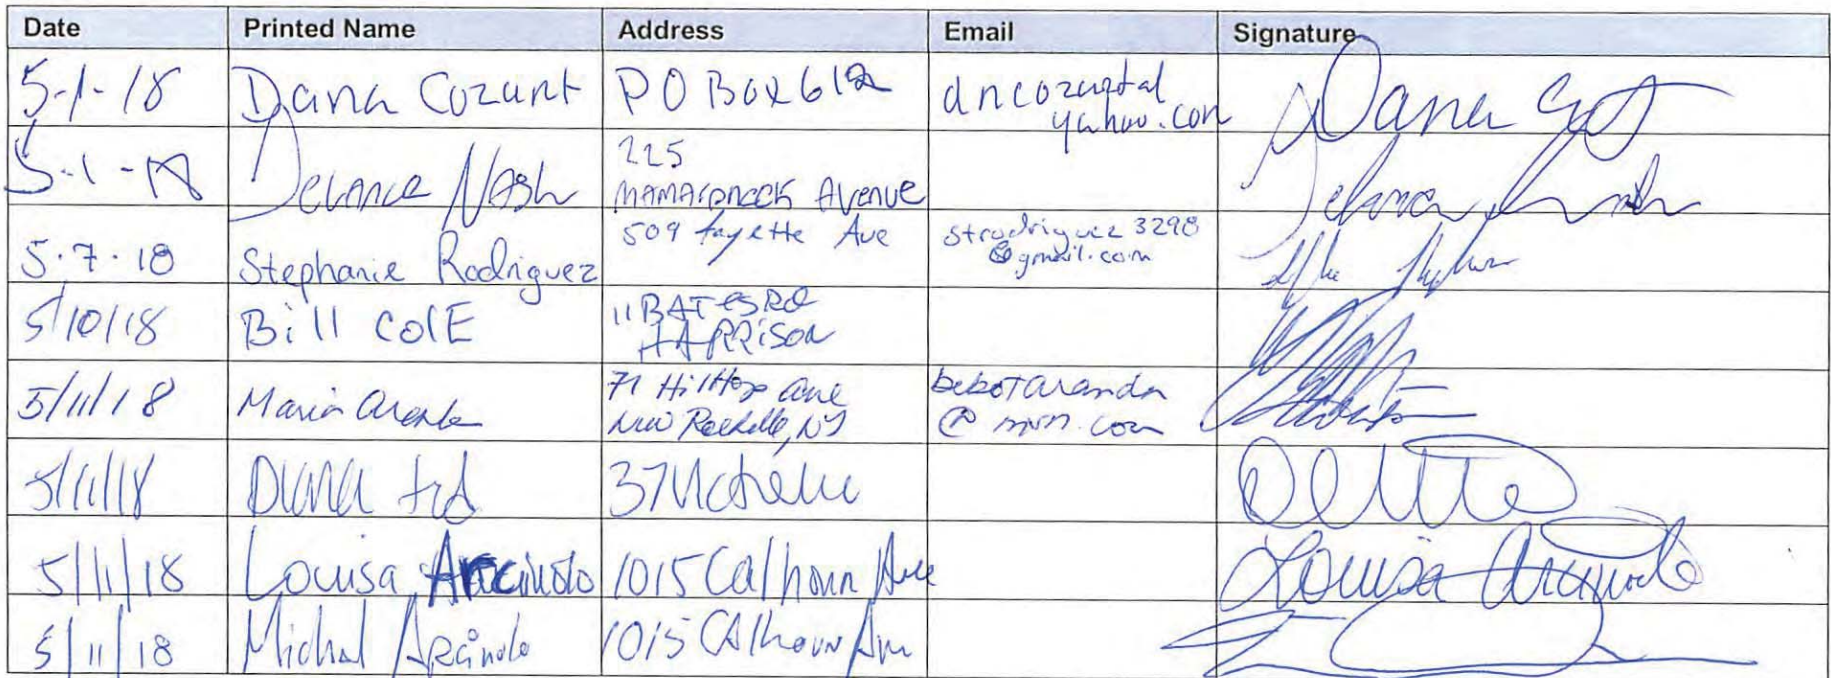 Date Printed Name Address Email Signature
5-1-18 Dana Cozart PO Box 612 dncozartal
yahoo.com
5-1-18 Delance Nash 225
MAMAroneck AvenuE
5.7.18 Stephanie Rodriguez 509 fayette Ave strodriguez3298
@gmail.com
5/10/18 Bill ColE 11 BATES RD
HARRiSON
5/11/18 Maria 71 Hilltop ave bebotaranda
New Rochelle, NY @ msn.com
5/11/18 Diana 37
5/11/18 Louisa Arcinolo 1015 Calhoun Ave Louisa Arcinolo
5/11/18 Michal Arcinolo 1015 CAlhoun Ave